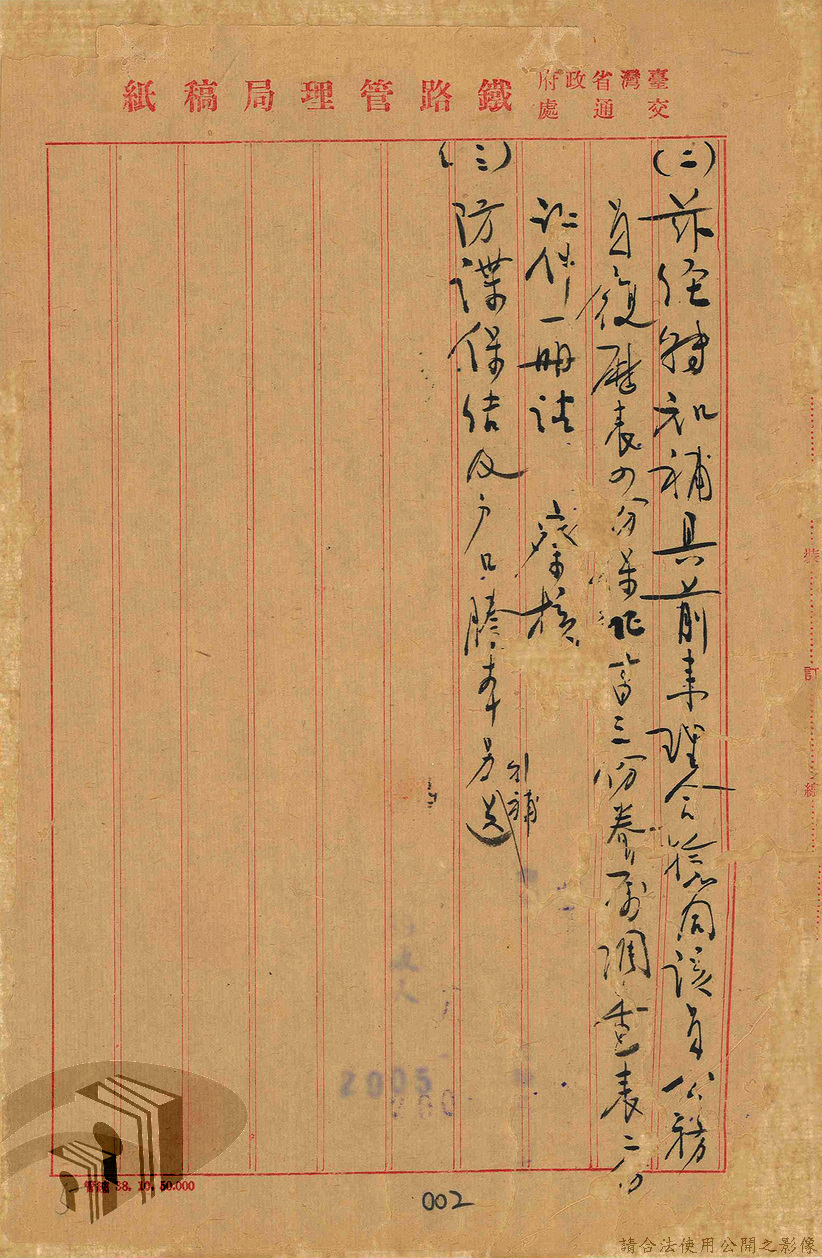 臺灣省政府
交通處
鐵路管理局稿紙
(二)茲經轉知補具前來理合檢同該員公務
員履歷表四份保証書三份眷屬調查表二份
証件一冊請 察核
(三)防諜保結及戶口謄本另送
補
裝
訂
線
38. 10. 50.000
2005
002
請合法使用公開之影像